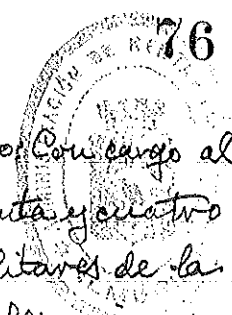 76
o. Con cargo al
uta y cuatro
litares de la